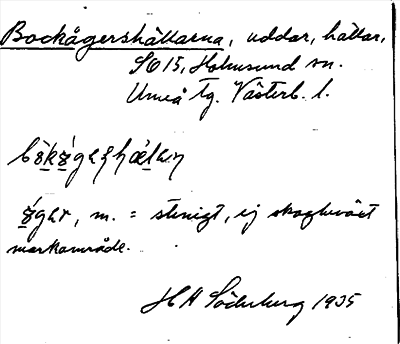 Bockågershällarna, uddar, hällar,
SO 15, Holmsund sn.
Umeå tg. Västerb. l.
m. = stenigt, ej skogbevuxet
markområde.
H A Söderberg 1935